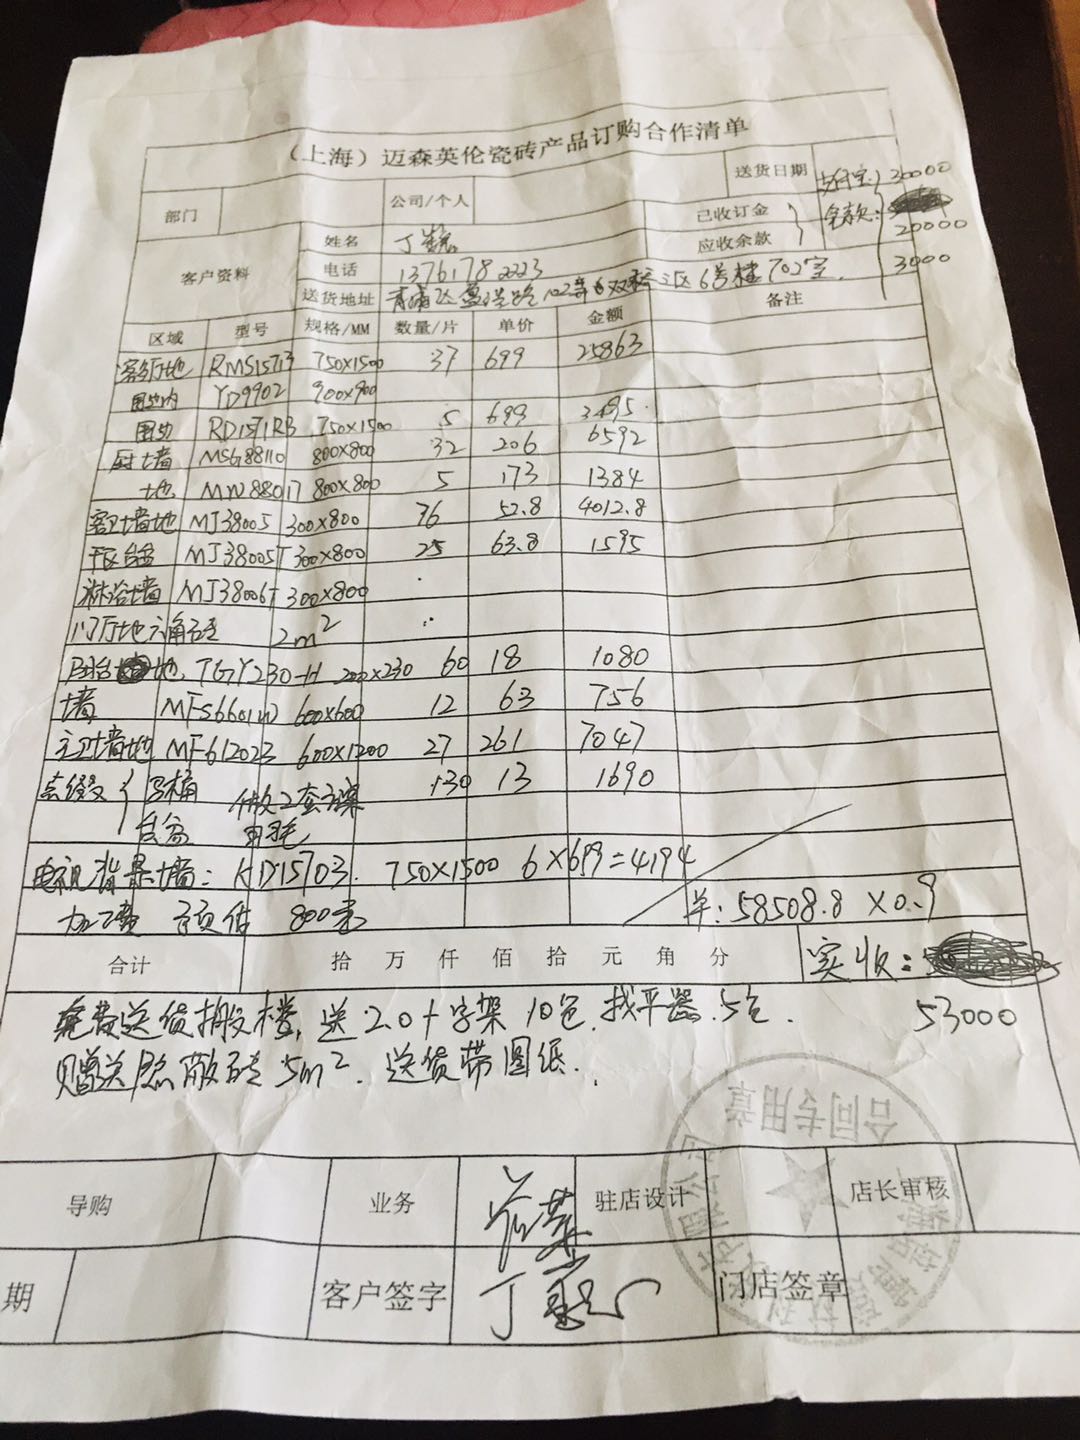 （上海）迈森英伦瓷砖产品订购合作清单
部门 公司/个人 送货日期 支付宝: 30000
客户资料 姓名 丁 已收订金 余款: 20000
电话 13761782223 应收余款 3000
送货地址 6号楼702室
区域 型号 规格/MM 数量/片 单价 金额 备注
客厅地 RMS15713 750x1500 37 699 25863
围边内 YD9902 900x900
围边 RD1571RB 750x1500 5 699 3495
厨墙 MSG88110 800x800 32 206 6592
地 MW88017 800x800 5 173 1384
客卫墙地 MJ38005 300x800 76 52.8 4012.8
干区台盆 MJ38005T 300x800 25 63.8 1595
淋浴墙 MJ38006T 300x800
门厅地六角砖 2m²
阳台地 TGY230-H 200x230 60 18 1080
墙 MFS6601W 600x600 12 63 756
主卫墙地 MF612023 600x1200 27 261 7047
点缀 马桶 130 13 1690
台盆
电视背景墙: KD15703. 750x1500 6x699=4194
加工费 预估 800元 58508.8 x0.9
合计 拾 万 仟 佰 拾 元 角 分 实收:
53000
免费送货搬楼, 送2.0十字架10包, 找平器.5包.
赠送 砖5m². 送货带图纸.
合同专用章
导购 业务 驻店设计 店长审核
期 客户签字 丁 门店签章